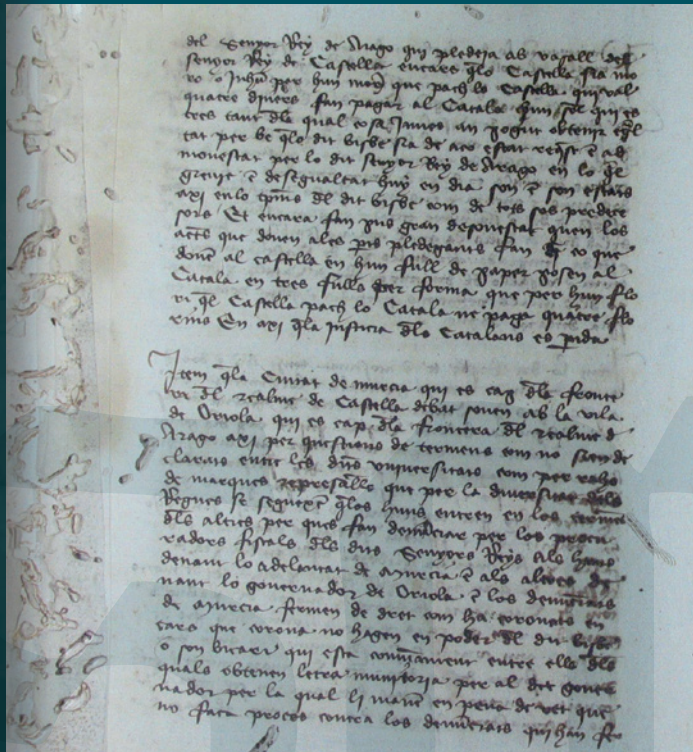 del Senyor Rey de Arago qui pledeja ab vasall del
senyor Rey de Castella encara qlo Castella sia mo
ro o Juheu per hun mor que pach lo Castella qui val
quatre diners fan pagar al Catala hun sol qui es
tres tant dla qual cosa James an pogut obtenir egl
tat per be qlo dit bisbe sia de aco estat request e ad
monestat per lo dit senyor Rey de Arago en lo ql
greuge e desegualtat huy en dia son e son estats
axi en lo temps dl dit bisbe com de tots sos predece
sors Et encara fan pus gran desonestat quen los
actes que donen ales pts pledejants fan de ço que
donen al castella en hun full de paper posen al
Catala en tres fulls per forma que per hun flo
ri ql Castella pach lo Catala ne paga quatre flo
rins En axi qla justicia dls Catalans es pda
Item qla Ciutat de murcia qui es cap dla fronte
ra dl realme de Castella debat souen ab la vila
de Oriola qui es cap dla frontera dl realme d
Arago axi per questions de termens com no sien de
clarats entre les dues vniuersitats com per raho
de marques represalles que per la diuersitat dels
Regnes se seguexen qlos huns entren en los termens
dls altres per ques fan denunciar per los procu
radors fiscals dls dits Senyors Reys als huns
denant lo adelantat de Murcia e als altres de
nant lo gouernador de Oriola e los denunciats
de Murcia fermen de dret com ha coronats en
cara que corona no hagen en poder dl dit bisbe
o son vicari qui esta continuament entre ells dls
quals obtenen letra munitoria per al dit gouer
nador per la qual li mane en pena de vet que
no faca proces contra los denunciats qui han fer